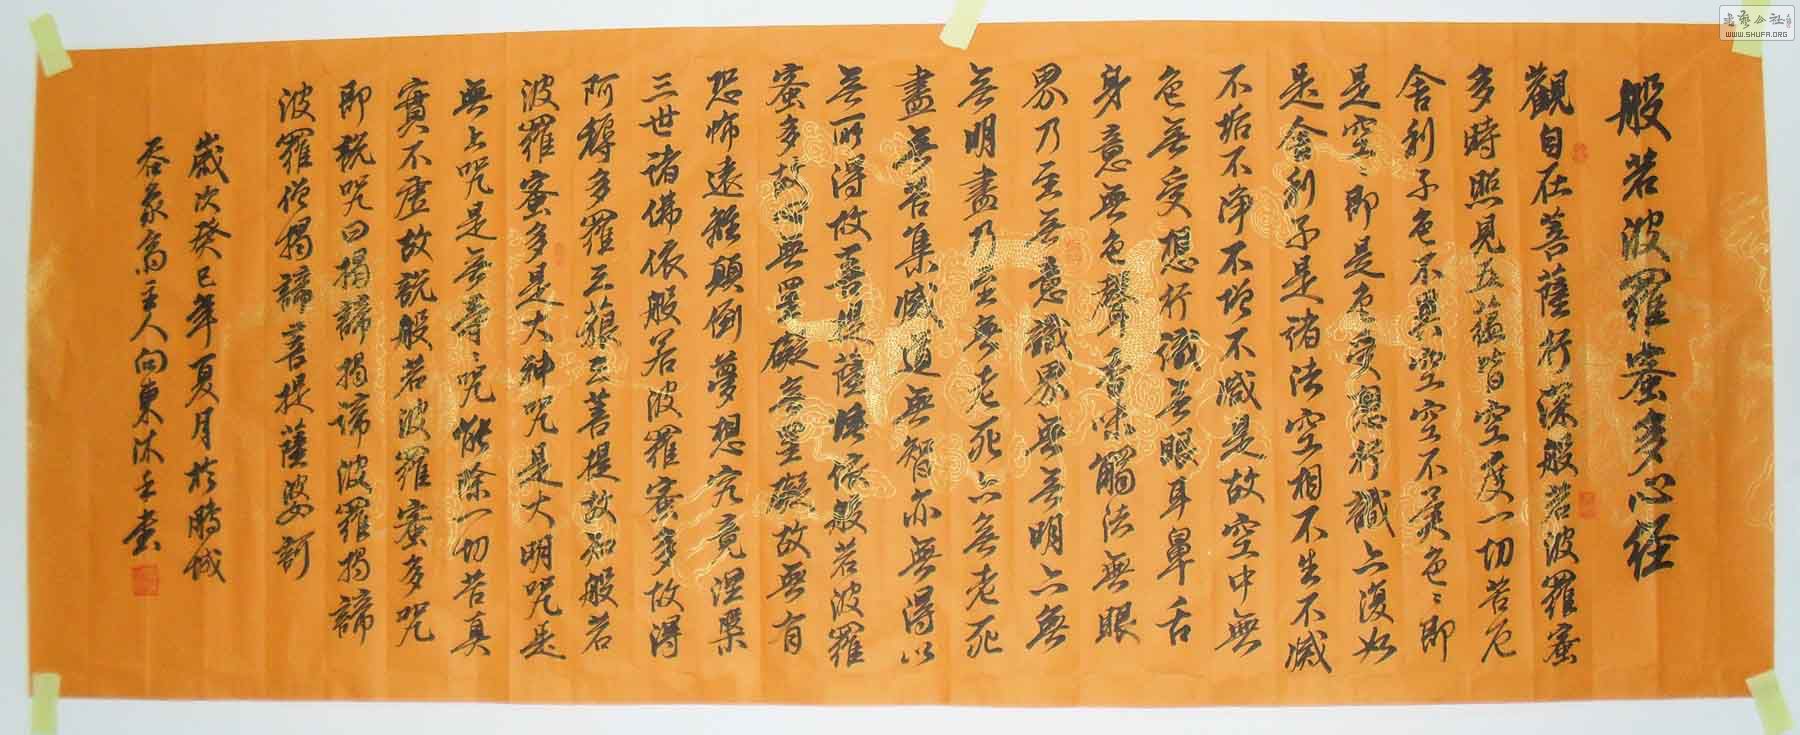 般若波羅蜜多心经
觀自在菩薩行深般若波羅蜜
多時照見五蕴皆空度一切苦厄
舍利子色不異空空不異色〻即
是空〻即是色受想行識亦復如
是舍利子是諸法空相不生不滅
不垢不净不增不减是故空中無
色无受想行識无眼耳鼻舌
身意無色聲香味觸法無眼
界乃至无意識界無无明亦無
无明盡乃至無老死亦无老死
盡無苦集滅道無智亦無得以
无所得故菩提薩埵依般若波羅
蜜多故心無罣礙无罣礙故無有
恐怖遠離顛倒夢想究竟涅槃
三世诸佛依般若波羅蜜多故得
阿耨多羅三藐三菩提故知般若
波羅蜜多是大神咒是大明咒是
無上咒是无等咒能除一切苦真
實不虚故説般若波羅蜜多咒
即説咒曰揭諦揭諦波羅揭諦
波羅僧揭諦菩提薩婆訶
歲次癸巳年夏月於鹏城
吞象斋主人向東沐手書
书艺公社
WWW.SHUFA.ORG